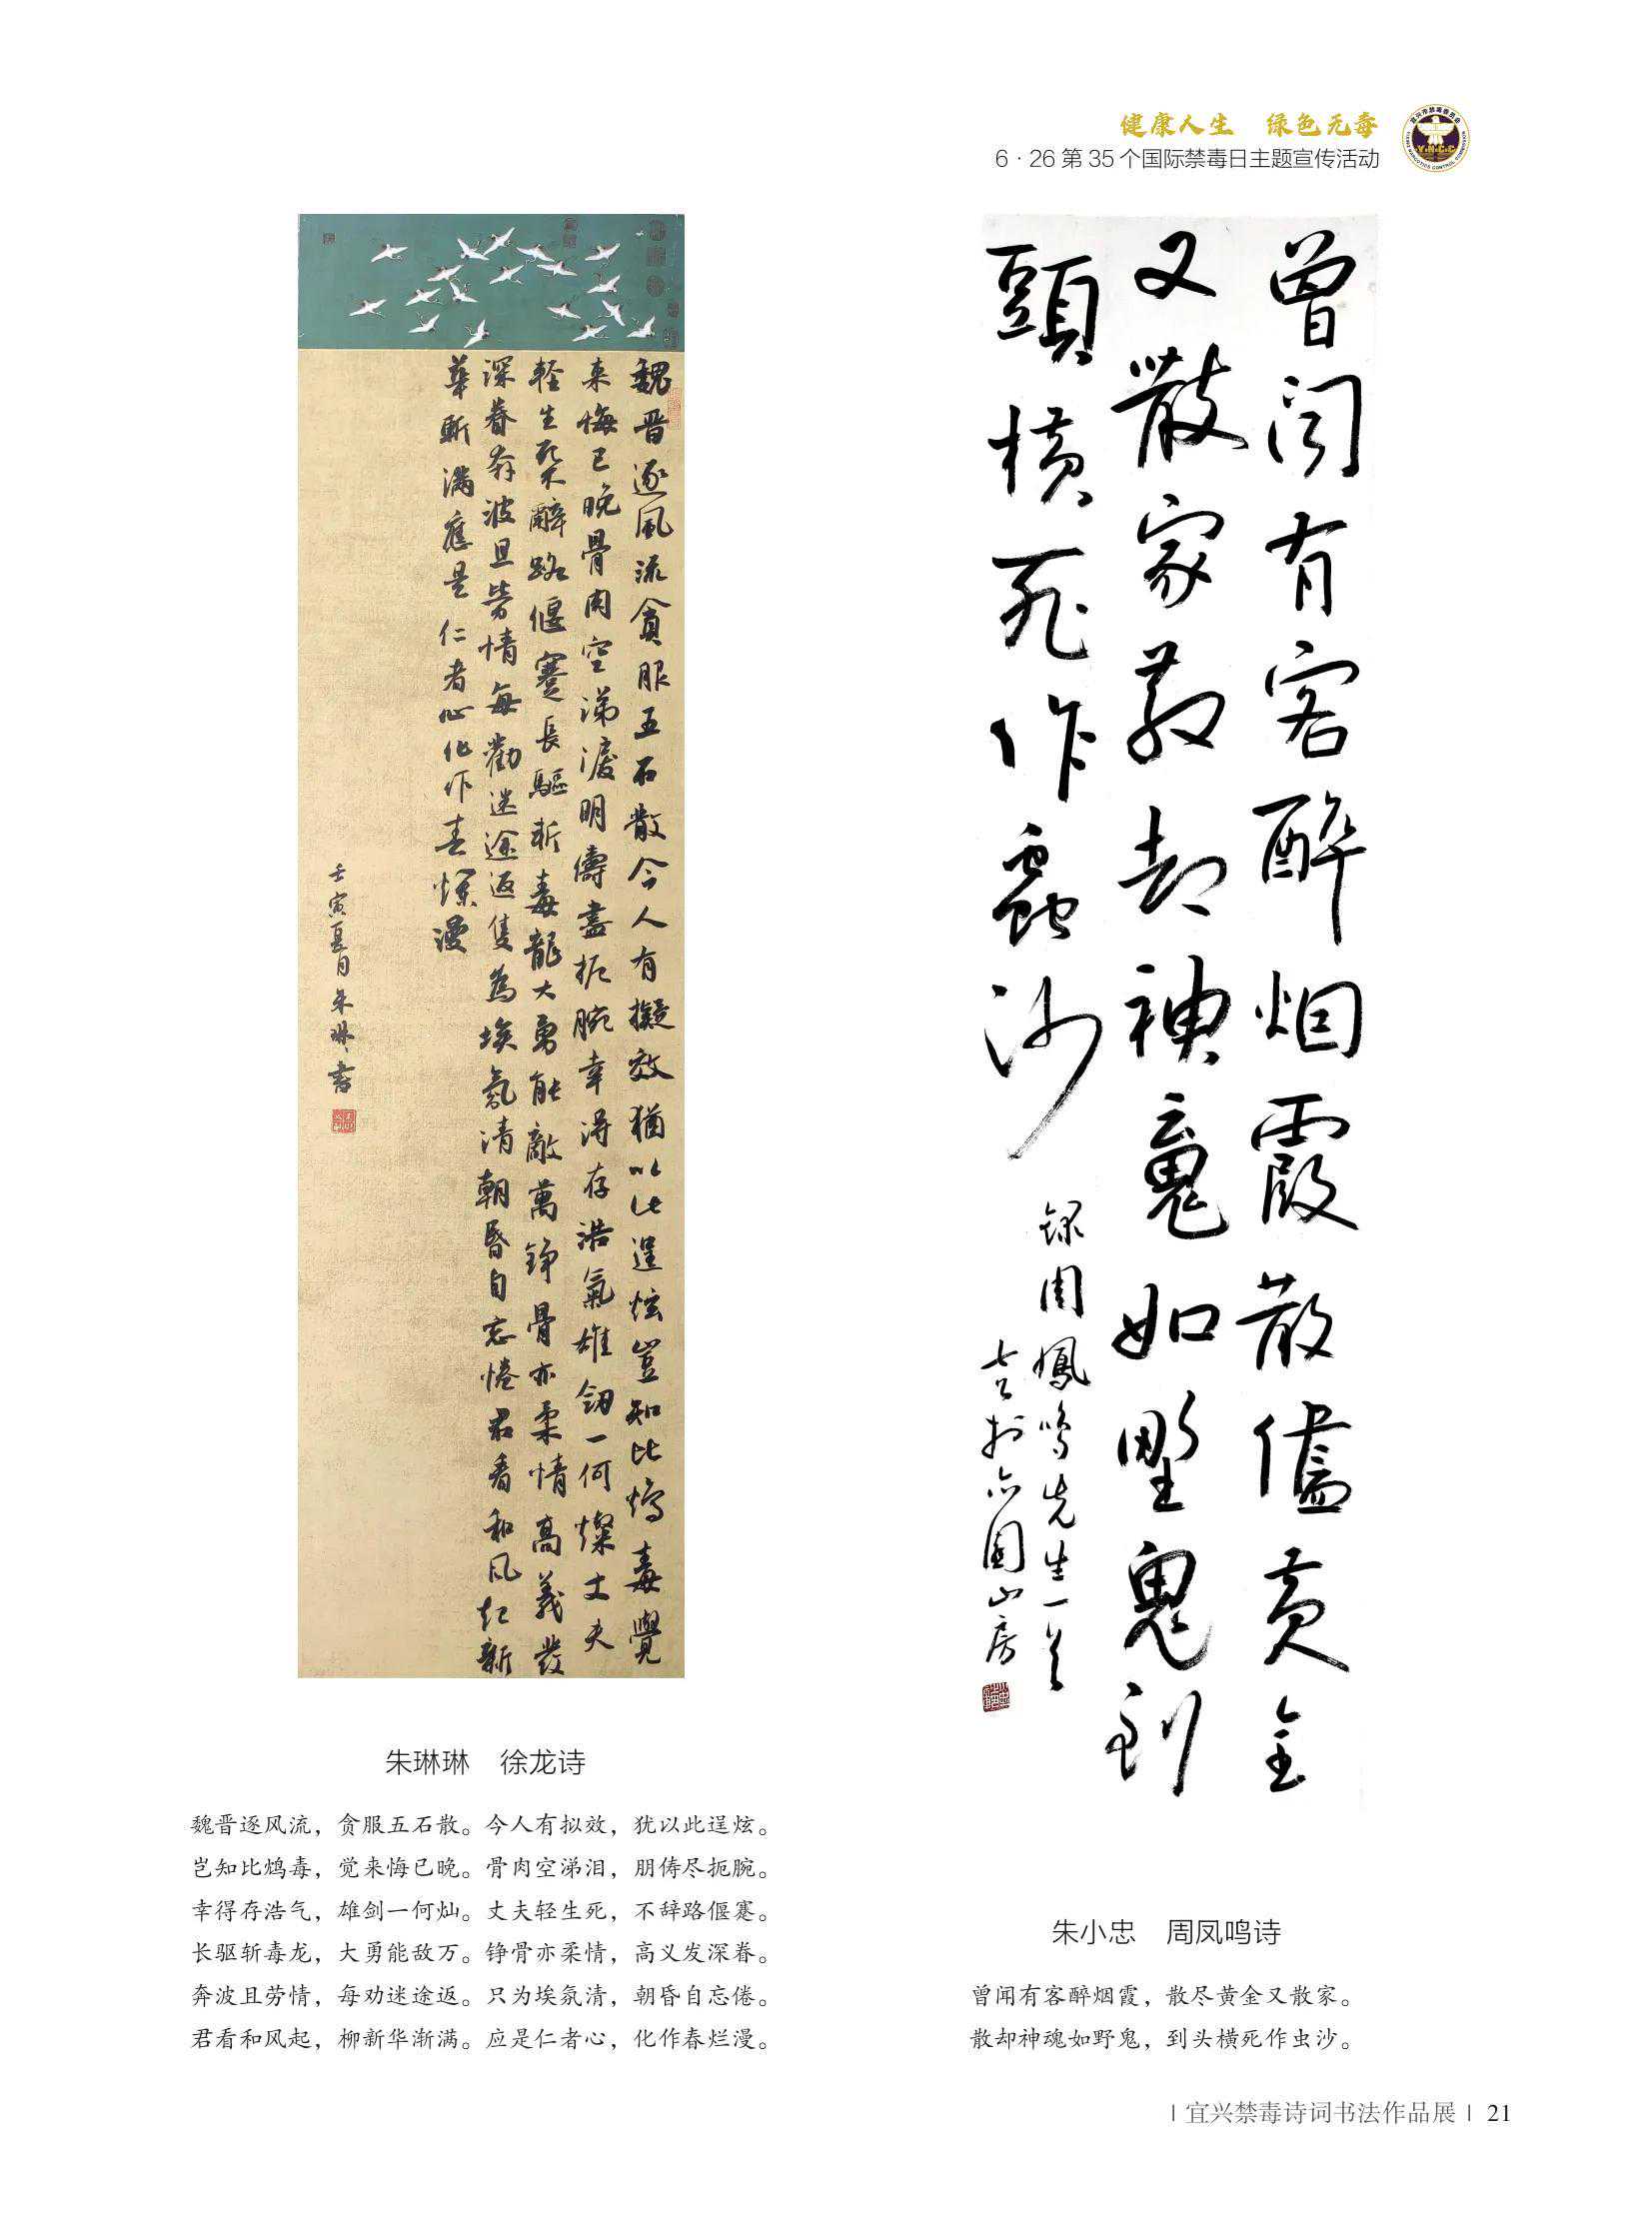 健康人生　绿色无毒
6·26 第 35 个国际禁毒日主题宣传活动
宜兴市禁毒委员会
Y.N.C.C
YIXING NARCOTICS CONTROL COMMISSION
曾闻有客醉烟霞散儘黄金
又散家散却神魂如野鬼到
頭横死作蟲沙
録周鳳鸣先生一首
七哲於亦園山房
魏晋逐風流貪服五石散今人有擬效猶以此逞炫豈知比鸩毒覺
来悔已晚骨肉空涕淚朋儔盡扼腕幸得存浩氣雄劒一何燦丈夫
輕生死不辭路偃蹇長驅斬毒龍大勇能敵萬錚骨亦柔情高義發
深眷奔波且勞情每勸迷途返隻為埃氛清朝昏自忘惓君看和风起新
華漸满應是仁者心化作春爛漫
壬寅夏月朱琳书
朱琳琳　徐龙诗
魏晋逐风流，贪服五石散。今人有拟效，犹以此逞炫。
岂知比鸩毒，觉来悔已晚。骨肉空涕泪，朋俦尽扼腕。
幸得存浩气，雄剑一何灿。丈夫轻生死，不辞路偃蹇。
长驱斩毒龙，大勇能敌万。铮骨亦柔情，高义发深眷。
奔波且劳情，每劝迷途返。只为埃氛清，朝昏自忘倦。
君看和风起，柳新华渐满。应是仁者心，化作春烂漫。
朱小忠　周凤鸣诗
曾闻有客醉烟霞，散尽黄金又散家。
散却神魂如野鬼，到头横死作虫沙。
| 宜兴禁毒诗词书法作品展 | 21